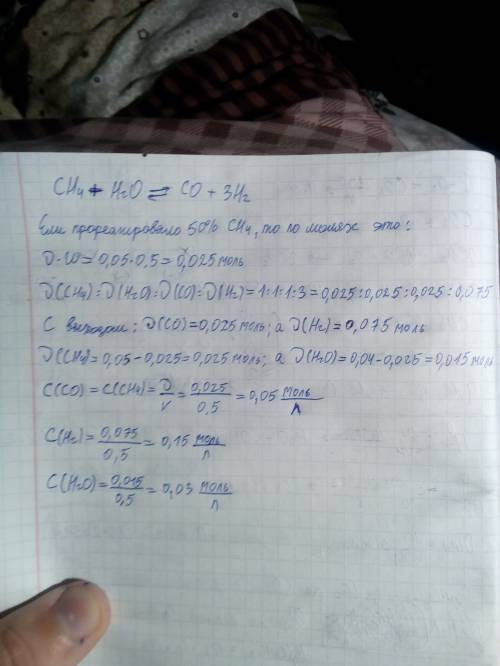 CH4 + H2O ⇌ CO + 3H2
Если прореагировало 50% CH4, то по молях это:
0,05·0,5=0,025 моль
ν(CH4):ν(H2O):ν(CO):ν(H2)=1:1:1:3=0,025:0,025:0,025:0,075
ν(CO)=0,025 моль; а ν(H2)=0,075 моль
ν(CH4)=0,05-0,025=0,025 моль; а ν(H2O)=0,04-0,025=0,015 моль
C(CO)=C(CH4)=ν/V=0,025/0,5=0,05 моль/л
C(H2)=0,075/0,5=0,15 моль/л
C(H2O)=0,015/0,5=0,03 моль/л